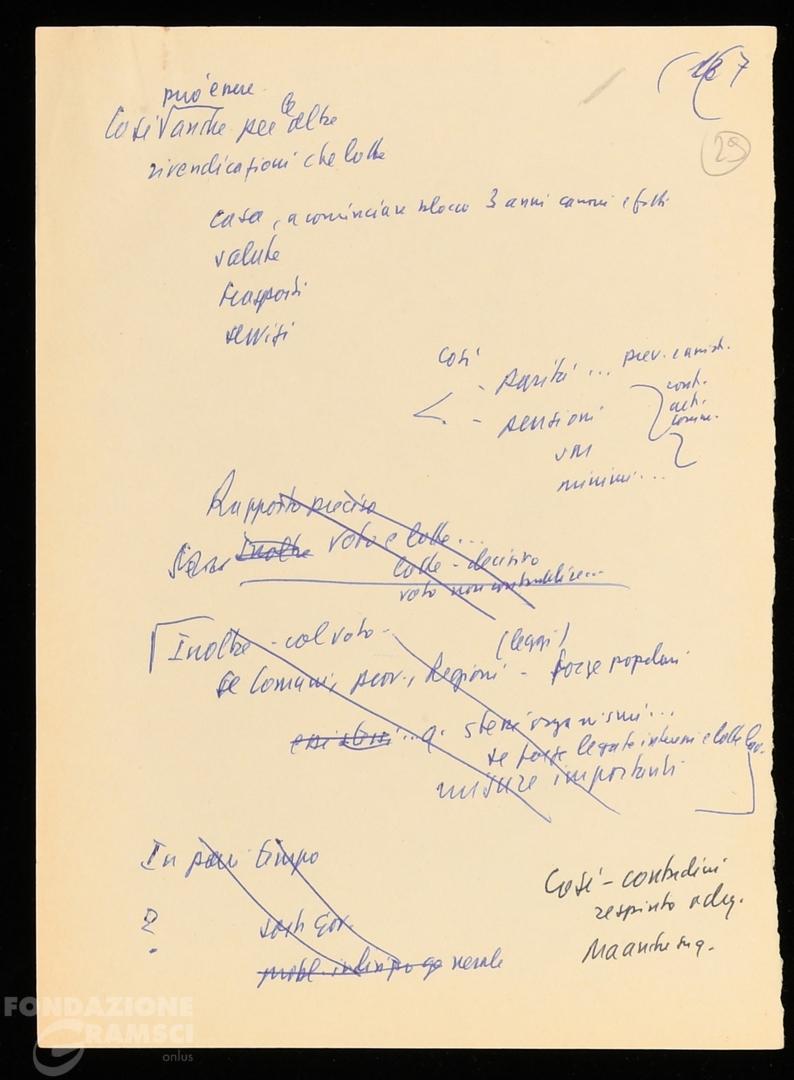 167
29
può essere
Così anche per le altre
rivendicazioni che lotte
casa, a cominciare blocco 3 anni canoni e fitti
valute
trasporti
servizi
Così
- parità ...
- pensioni
cont.
minimi ...
Rapporto preciso
Inoltre voto e lotte ...
lotte - decisivo
voto non
Inoltre - col voto -
(leggi)
se Comuni, prov., Regioni - forze popolari
stessi organismi ...
se forze legate interessi e lotte lav.
misure importanti
In pari tempo
?
gov.
generale
Così - contadini
respinto
Ma anche
FONDAZIONE
GRAMSCI
onlus